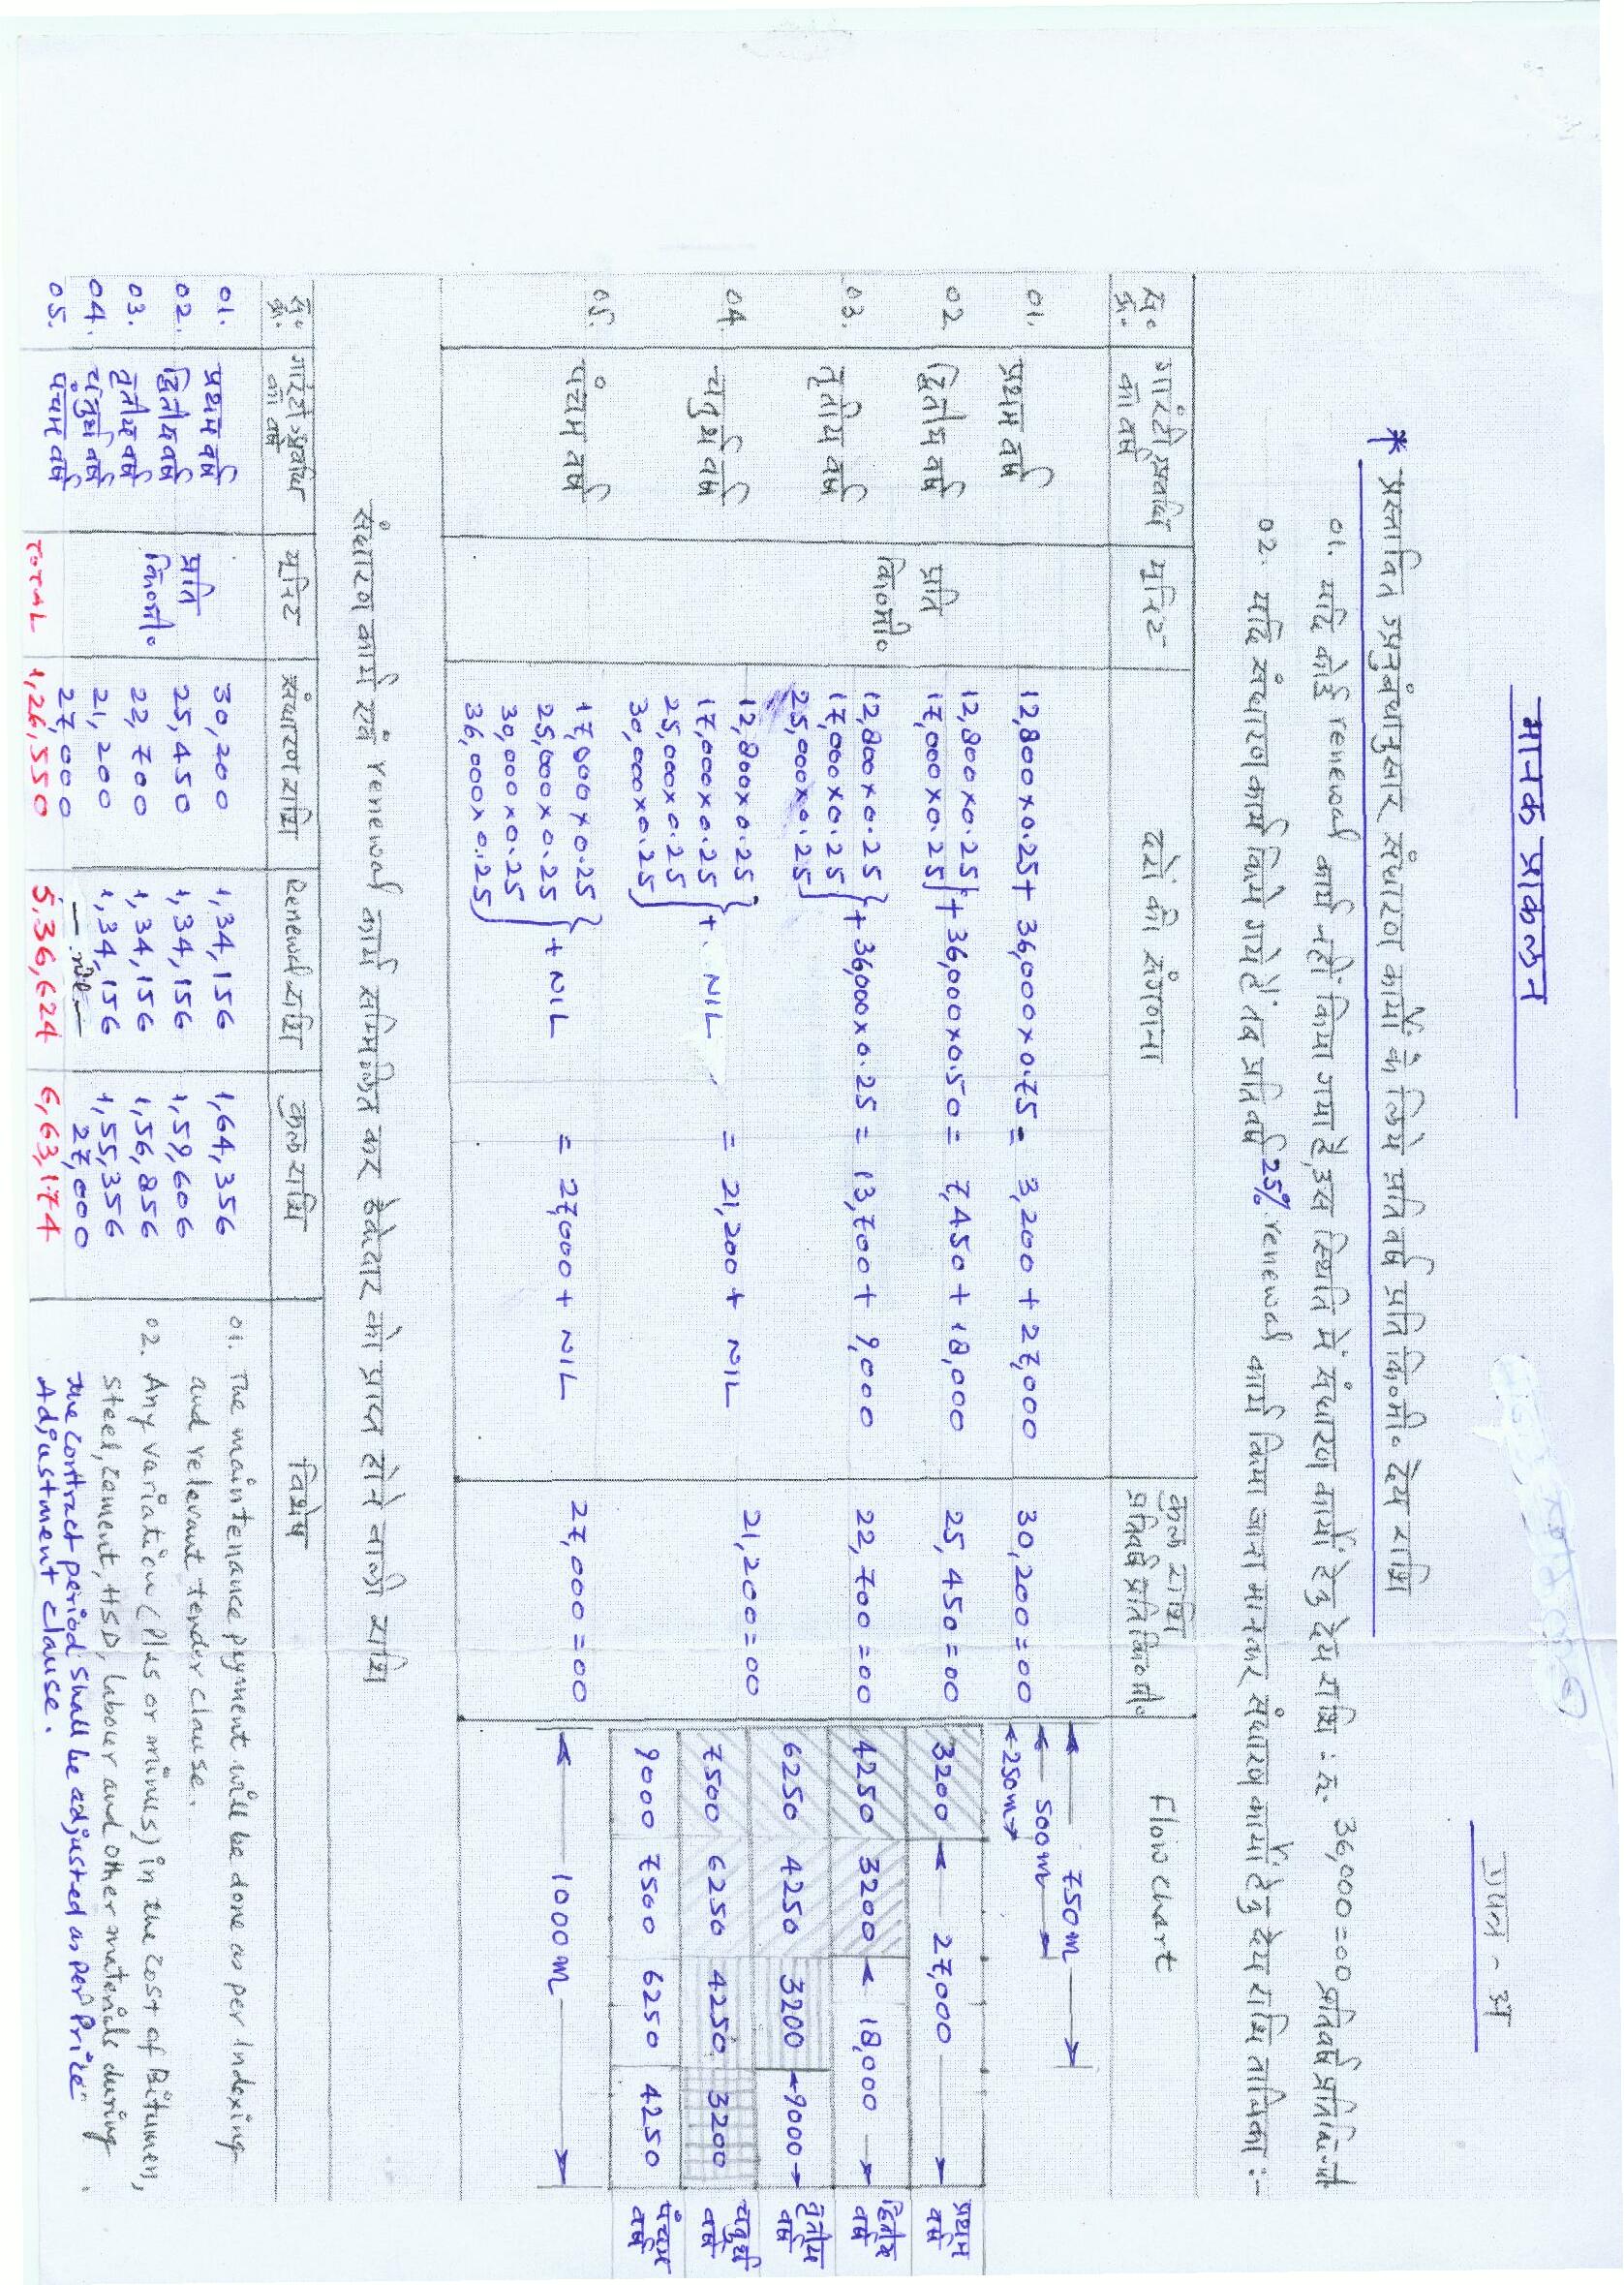 मानक प्राकलन
प्रपत्र - अ
* प्रस्तावित अनुबंधानुसार संधारण कार्यों के लिये प्रतिवर्ष प्रति कि०मी० देय राशि
01. यदि कोई renewal कार्य नहीं किया गया है, इस स्थिति में संधारण कार्यों हेतु देय राशि : रू. 36,000=00 प्रतिवर्ष प्रतिकि.मी
02. यदि संधारण कार्य किये गये हैं तब प्रतिवर्ष 25% renewal कार्य किया जाना मानकर संधारण कार्यों हेतु देय राशि तालिका :-
स० क्र० गारंटी अवधि का वर्ष यूनिट दरों की संगणना कुल राशि प्रतिवर्ष प्रति कि०मी. Flow chart
01. प्रथम वर्ष 12,800×0.25+ 36,000×0.75 = 3,200 + 27,000 30,200=00
02 द्वितीय वर्ष प्रति कि०मी० 12,800×0.25 17,000×0.25 } + 36,000×0.50 = 7,450 + 18,000 25,450=00
03. तृतीय वर्ष 12,800×0.25 17,000×0.25 25,000×0.25 } + 36,000×0.25 = 13,700 + 9,000 22,700=00
04. चतुर्थ वर्ष 12,800×0.25 17,000×0.25 25,000×0.25 30,000×0.25 } + NIL = 21,200 + NIL 21,200=00
05. पंचम वर्ष 17,000×0.25 25,000×0.25 30,000×0.25 36,000×0.25 } + NIL = 27,000 + NIL 27,000=00
750m
500m
250m
3200 27,000 प्रथम वर्ष
4250 3200 18,000 द्वितीय वर्ष
6250 4250 3200 9000 तृतीय वर्ष
7500 6250 4250 3200 चतुर्थ वर्ष
9000 7500 6250 4250 पंचम वर्ष
1000m
संधारण कार्य एवं renewal कार्य सम्मिलित कर ठेकेदार को प्राप्त होने वाली राशि
स० क्र. गारंटी अवधि का वर्ष यूनिट संधारण राशि Renewal राशि कुल राशि विशेष
01. प्रथम वर्ष 30,200 1,34,156 1,64,356
02. द्वितीय वर्ष प्रति कि०मी. 25,450 1,34,156 1,59,606
03. तृतीय वर्ष 22,700 1,34,156 1,56,856
04. चतुर्थ वर्ष 21,200 1,34,156 1,55,356
05. पंचम वर्ष 27,000 — nil — 27,000
TOTAL 1,26,550 5,36,624 6,63,174
01. The maintenance pyment will be done as per Indexing
and relevant tender clause.
02. Any variation (Plus or minus) in the cost of Bitumen,
steel, cement, HSD, labour and other materials during
the contract period shall be adjusted as per Price
Adjustment clause.